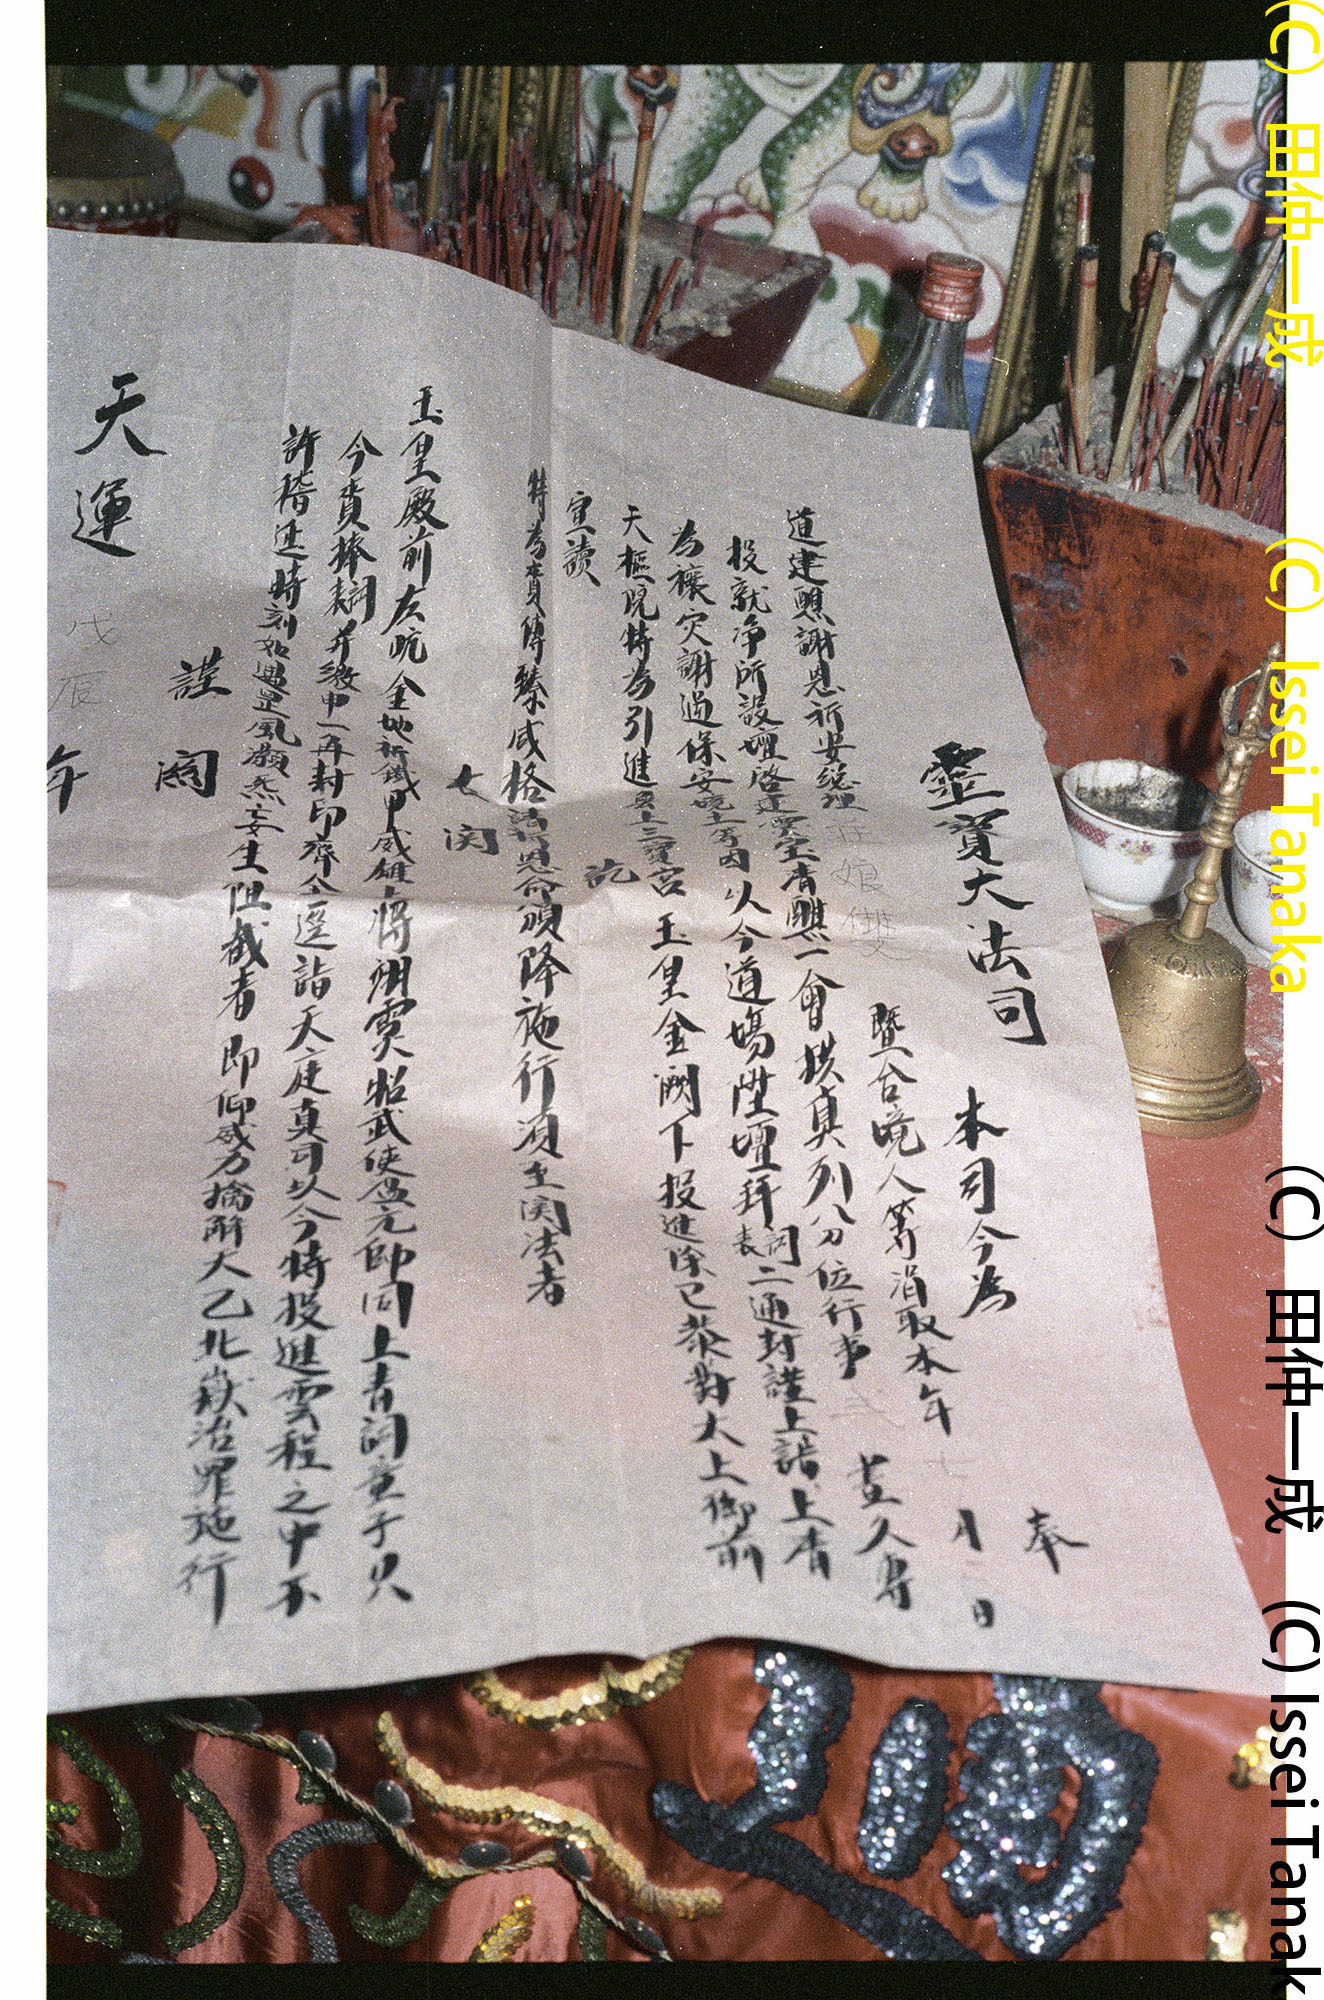 靈寶大法司
本司今為
奉
道建醮謝恩祈安總理
旺娘
暨合境人等涓取本年 七 月 日
投就淨所設壇啓建靈寶清醮一會拱真列分位行事
並久專
為禳灾謝過保安
等因以今道場陞壇拜詞表二通封謹上詣上清
天樞院特為引進
三寶宮玉皇金闕下投進除已恭對太上御前
宣讀訖
特為賫傳臻咸格
恩命頒降施行須至関法者
七関
玉皇殿前左吭金地祈鐵甲威雄將翊靈昭武使孟元帥同上青詞童子火
今賫捧詞并繳申一再封印齊全逕詣天庭真司以今特投進雲程之中不
許稽延時刻如遇罡風灝炁妄生阻截者即仰威力擒解大乙北嶽治罪施行
謹関
天運
戊辰
年
(C) 田仲一成 (C) Issei Tanaka
(C) 田仲一成 (C) Issei Tanak